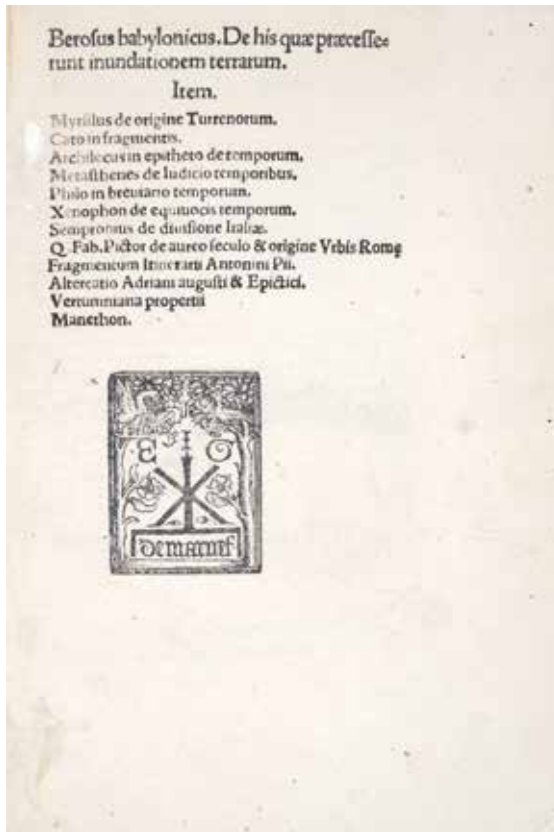 Berosus babylonicus. De his quæ præcesse=
runt inundationem terrarum.
Item.
Myrsilus de origine Turrenorum.
Cato in fragmentis.
Archilocus in epitheto de temporum.
Metasthenes de Iudicio temporibus.
Philo in breuiario temporum.
Xenophon de equiuocis temporum.
Sempronius de diuisione Italiæ.
Q. Fab. Pictor de aureo seculo & origine Vrbis Romę
Fragmentum Itinerarii Antonini Pii.
Altercatio Adriani augusti & Epictici.
Vertumniana propertii
Manethon.
E G
demarnef